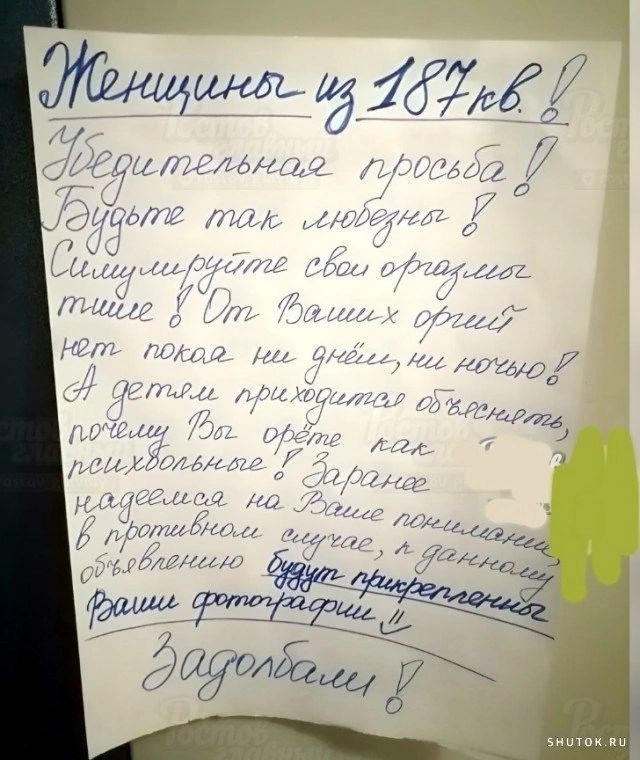 Женщины из 187 кв.!
Убедительная просьба!
Будьте так любезны!
Симулируйте свои оргазмы
тише! От Ваших оргий
нет покоя ни днём, ни ночью!
А детям приходится объяснять,
почему Вы орёте как
психбольные! Заранее
надеемся на Ваше понимание,
в противном случае, к данному
объявлению будут прикрепленны
Ваши фотографии
Задолбали!
SHUTOK.RU